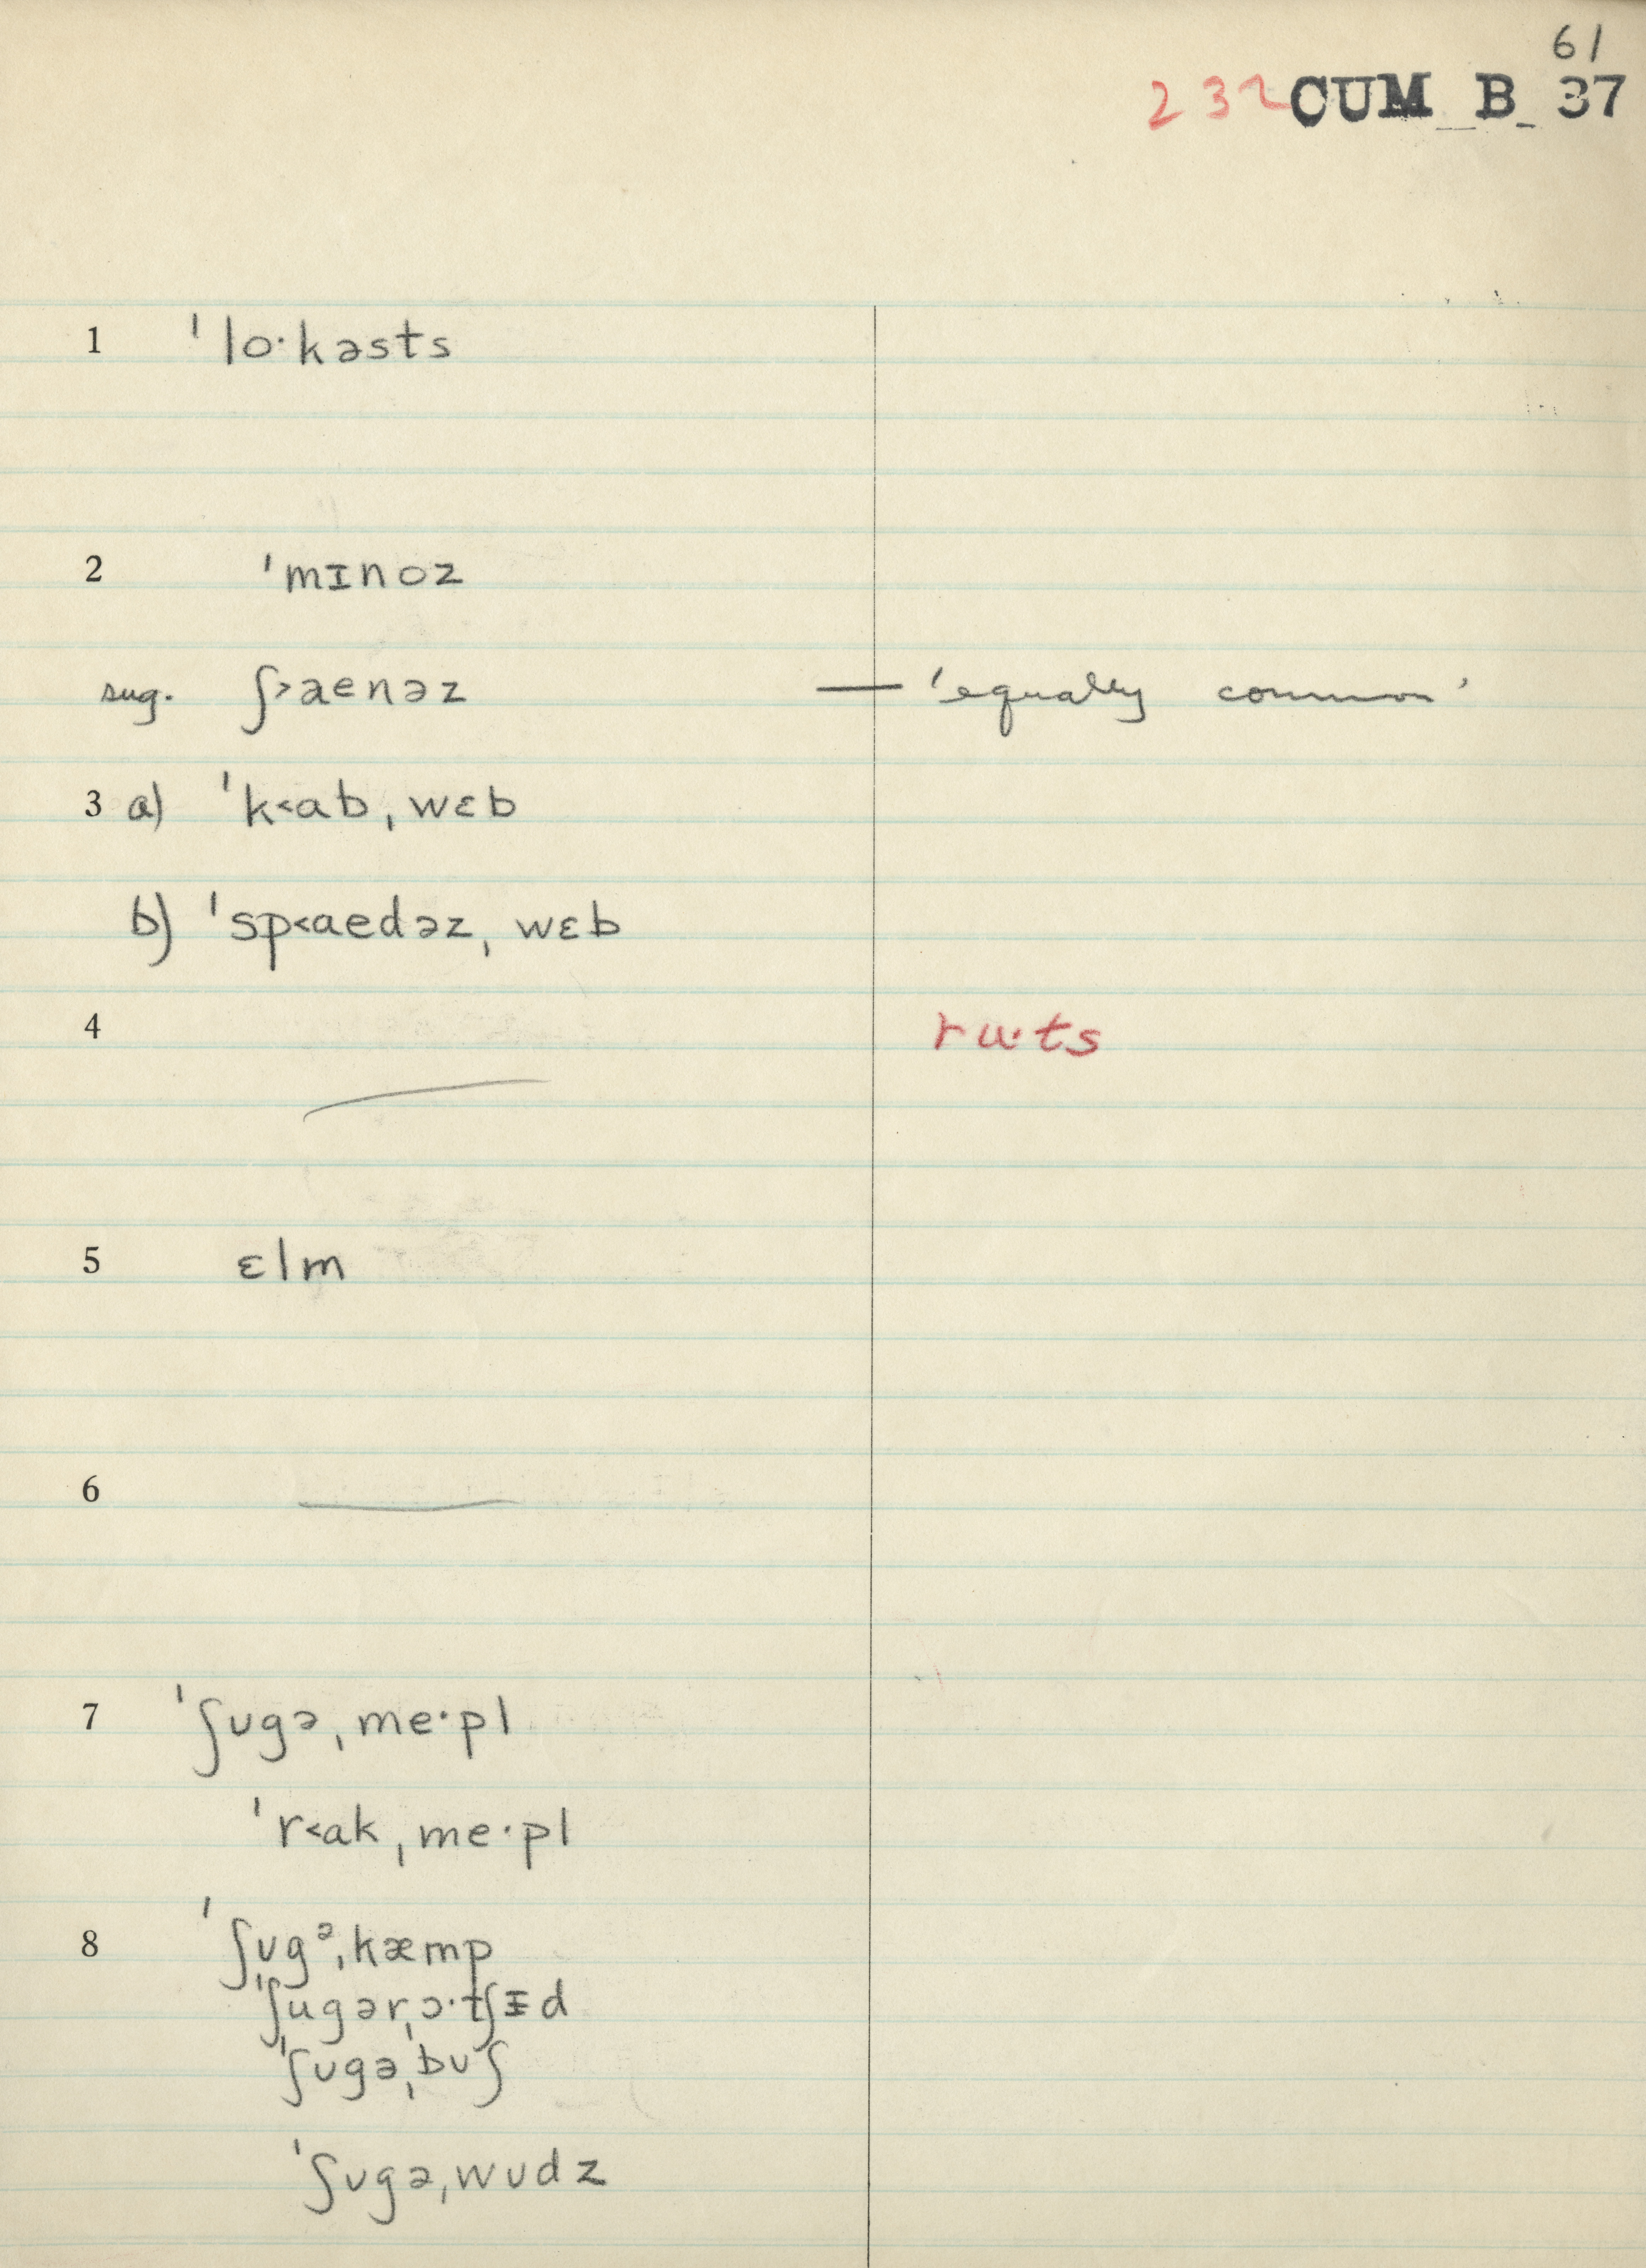 61
232 CUM B 37
1 ˈlo·kəsts
2 ˈmɪnoz
sug. ʃ>aenəz — 'equally common'
3 a) ˈk<abˌwɛb
b) ˈsp<aedəzˌwɛb
4 ru·ts
5 ɛlm
6
7 ˈʃʊgəˌme·pl
ˈr<akˌme·pl
8 ˈʃʊgᵊˌkæmp
ˈʃugərˌɔ·tʃɪd
ˈʃʊgəˌbʊʃ
ˈʃʊgəˌwʊdz